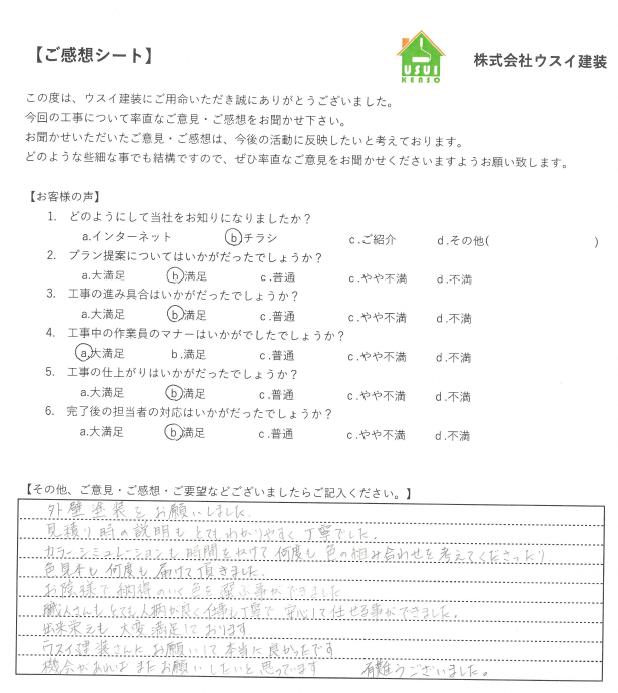 【ご感想シート】
USUI
KENSO
株式会社ウスイ建装
この度は、ウスイ建装にご用命いただき誠にありがとうございました。
今回の工事について率直なご意見・ご感想をお聞かせ下さい。
お聞かせいただいたご意見・ご感想は、今後の活動に反映したいと考えております。
どのような些細な事でも結構ですので、ぜひ率直なご意見をお聞かせくださいますようお願い致します。
【お客様の声】
1. どのようにして当社をお知りになりましたか？
a.インターネット b.チラシ c.ご紹介 d.その他( )
2. プラン提案についてはいかがだったでしょうか？
a.大満足 b.満足 c.普通 c.やや不満 d.不満
3. 工事の進み具合はいかがだったでしょうか？
a.大満足 b.満足 c.普通 c.やや不満 d.不満
4. 工事中の作業員のマナーはいかがでしたでしょうか？
a.大満足 b.満足 c.普通 c.やや不満 d.不満
5. 工事の仕上がりはいかがだったでしょうか？
a.大満足 b.満足 c.普通 c.やや不満 d.不満
6. 完了後の担当者の対応はいかがだったでしょうか？
a.大満足 b.満足 c.普通 c.やや不満 d.不満
【その他、ご意見・ご感想・ご要望などございましたらご記入ください。】
外壁塗装をお願いしました.
見積り時の説明もとてもわかりやすく丁寧でした.
カラーシミュレーションも時間をかけて何度も色の組み合わせを考えてくださったり
色見本も何度も届けて頂きました.
お陰様で納得のいく色を選ぶ事ができました
職人さんもとても人柄が良く仕事も丁寧で安心して任せる事ができました.
出来栄えも大変満足しております
ウスイ建装さんにお願いして本当に良かったです
機会があればまたお願いしたいと思っています 有難うございました。